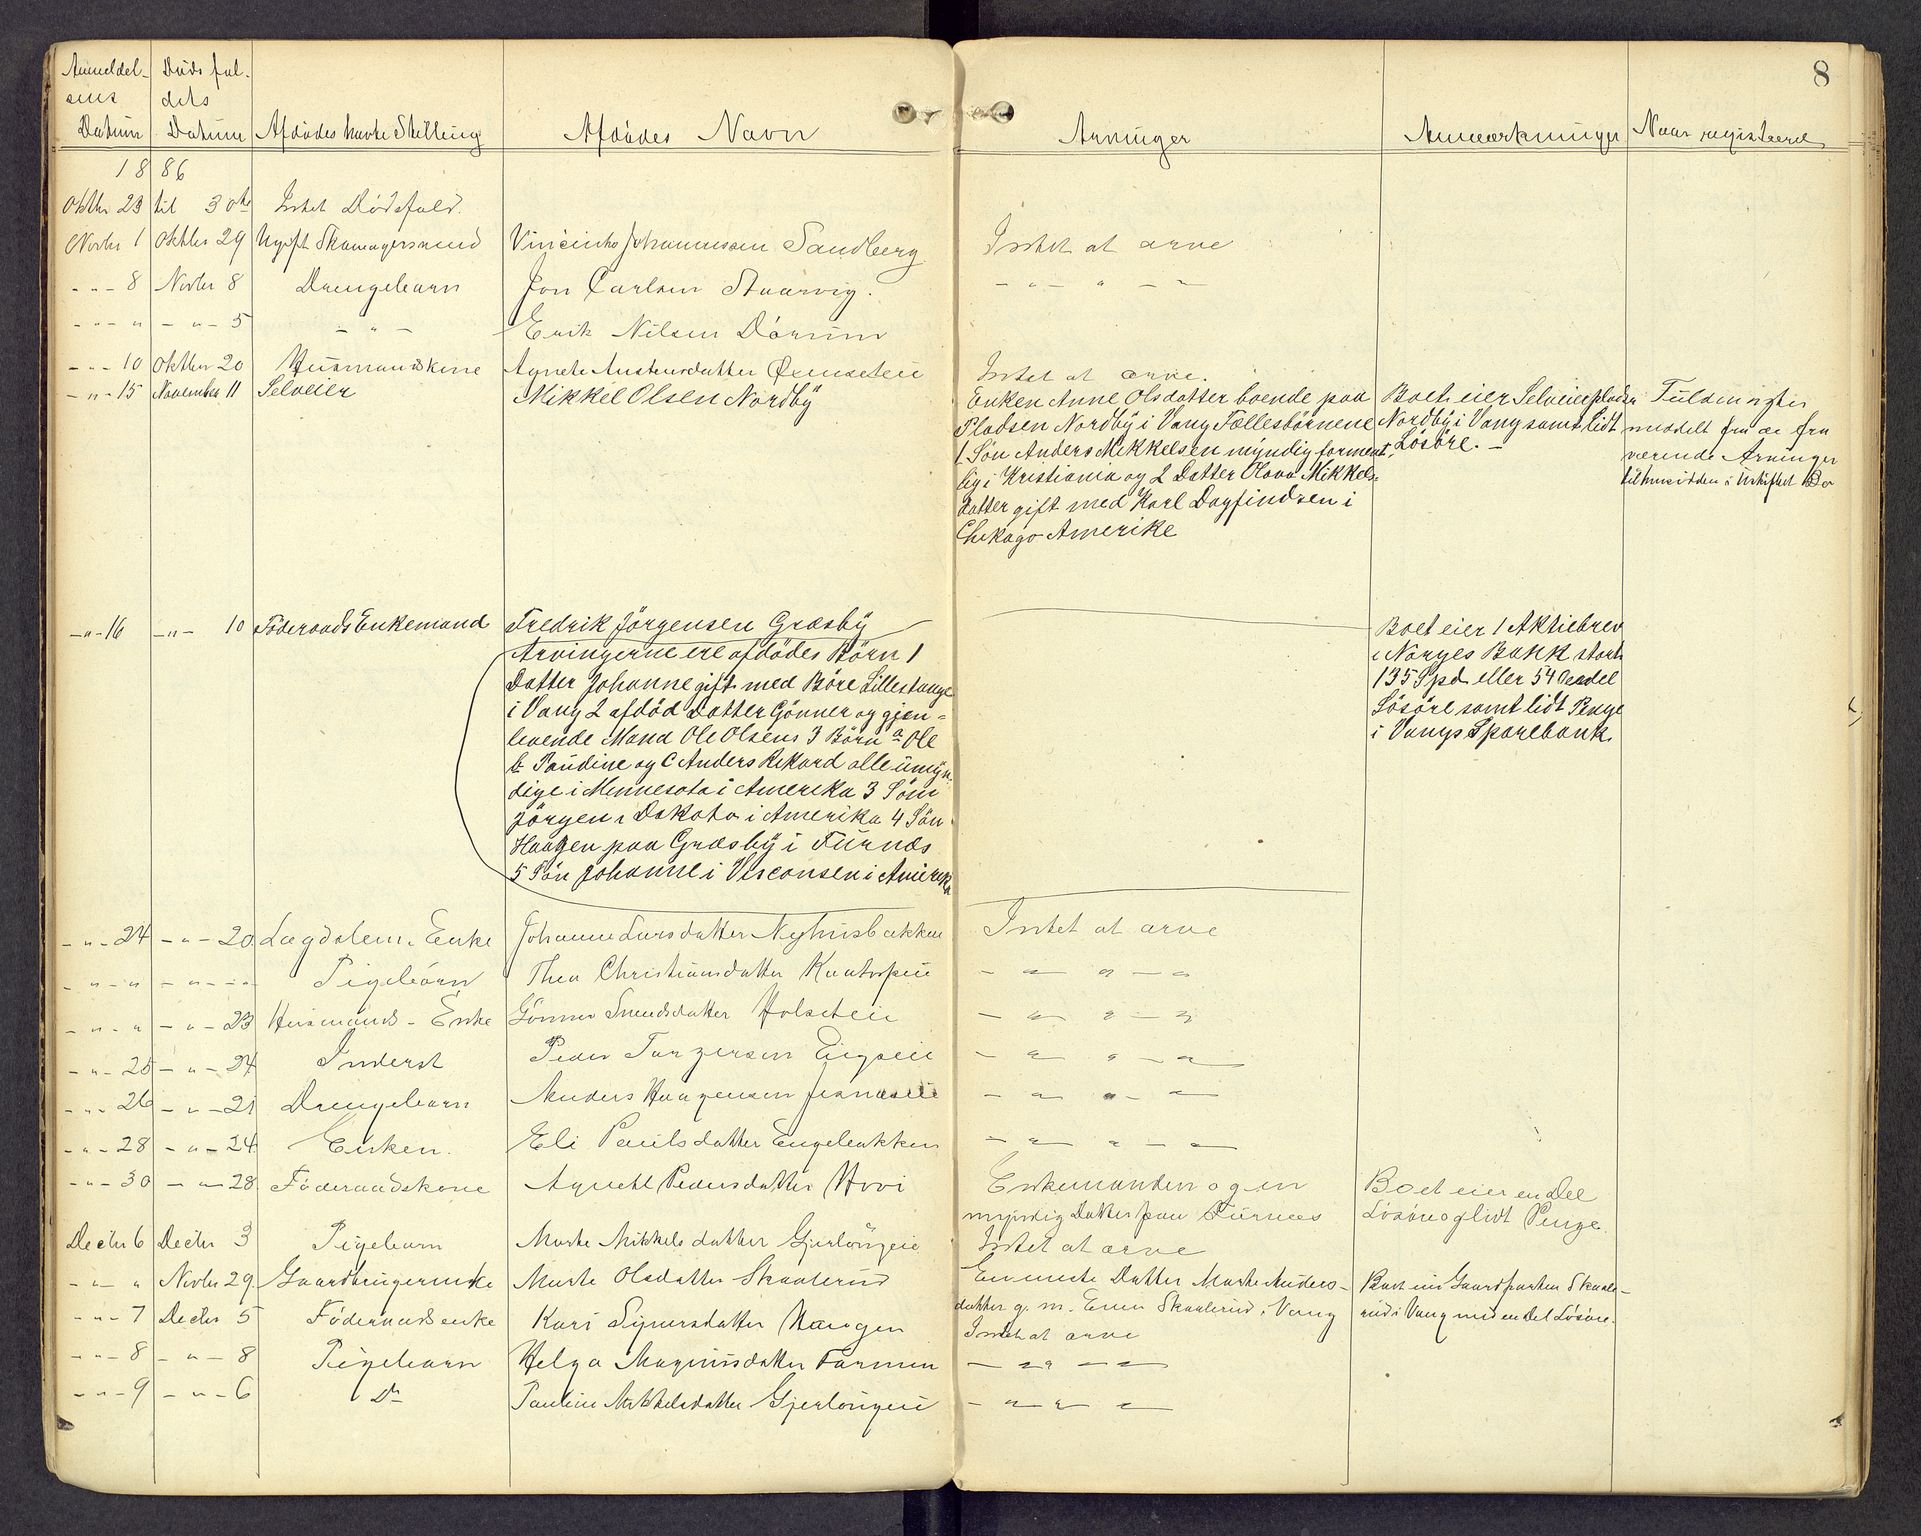 8
Anmeldel-
sens
Datum
Døds fal-
dets
Datum
Afdødes havte Stilling
Afdødes Navn
Arvinger
Anmærkninger
Naar registreret
1886
Oktbr 23 til 30te Intet Dødsfald.
Novbr 1 Oktbr 29 Ugift Skomagersvend Johannesen Sandberg Intet at arve
- " - 8 Novbr 8 Drengebarn Jon Carlsen Staarvig. - " - " - " -
- " - " - " - 5 - " - Erik Nilsen Dørum
- " - 10 Oktbr 20 Husmandskone Agnete Austensdatter Intet at arve.
- " - 15 November 11 Selveier Mikkel Olsen Nordby
Enken Anne Olsdatter boende paa
Pladsen Nordby i Vang Fællesbørnene
1 Søn Anders Mikkelsen myndig forment-
lig i Kristiania og 2 Datter Olava Mikkels-
datter gift med Karl Dagfindsen i
Chekago Amerike
Boet eier Selveierpladsen
Nordby i Vang samt lidt
Løsøre. -
Fuldmægtig
meddelt fra de fra
værende Arvinger
- " - 16 - " - 10 Føderaads Enkemand Fredrik Jørgensen Græsby
Arvingerne ere afdødes Børn 1
Datter Johanne gift med Børe Lillestange
i Vang 2 afdød Datter Gønner og gjen-
levende Mand Ole Olsens 3 Børn a Ole
b Paudine og C Anders Rikard alle umyn-
dige i Minnesota i Amerika 3 Søn
Jørgen i Dakota i Amerika 4 Søn
Haagen paa Græsby i Furnæs
5 Søn Johanne i Visconsen i Amerika
Boet eier 1 Aktiebrev
i Norges Bank stort
135 Spd eller 54 en del
Løsøre samt lidt Penge
i Vangs Sparebank.
- " - 24 - " - 20 Lægdslem. Enke Johanne Larsdatter Nyhusbakken Intet at arve
- " - " - " - " - Pigebarn Thea Christiansdatter - " " - "
- " - " - " - 23 Husmands-Enke Gønner Svendsdatter Holseteie - " " - "
- " - 25 - " - 24 Inderst Peder - " " - "
- " - 26 - " - 21 Drengebarn Anders Haagensen Jesnæseie - " " - "
- " - 28 - " - 24 Enken. Eli Paulsdatter Engebakken - " " - "
- " - 30 - " - 28 Føderaadskone Agnethe Pedersdatter Hovi
Enkemanden og en
myndig Datter paa Furnæs
Boet eier en Del
Løsøre og lidt Penge.
Decbr 6 Decbr 3 Pigebarn Marte Mikkelsdatter Gjerlougeie Intet at arve
- " - " Novbr 29 Gaardbrugerenke Marte Olsdatter Skaalerud
Eneste Datter Marte Anders-
datter g. m. Even Skaalerud i Vang
Boet eier Gaardparten Skaale-
rud i Vang med en Del Løsøre.
- " - 7 Decbr 5 Føderaadsenke Kari Syversdatter Haugen Intet at arve
- " - 8 - " - 8 Pigebarn Helga Magnusdatter Farmen - " " - -
- " - 9 - " - 6 Do Pauline Mikkelsdatter Gjerlougeie - " " -